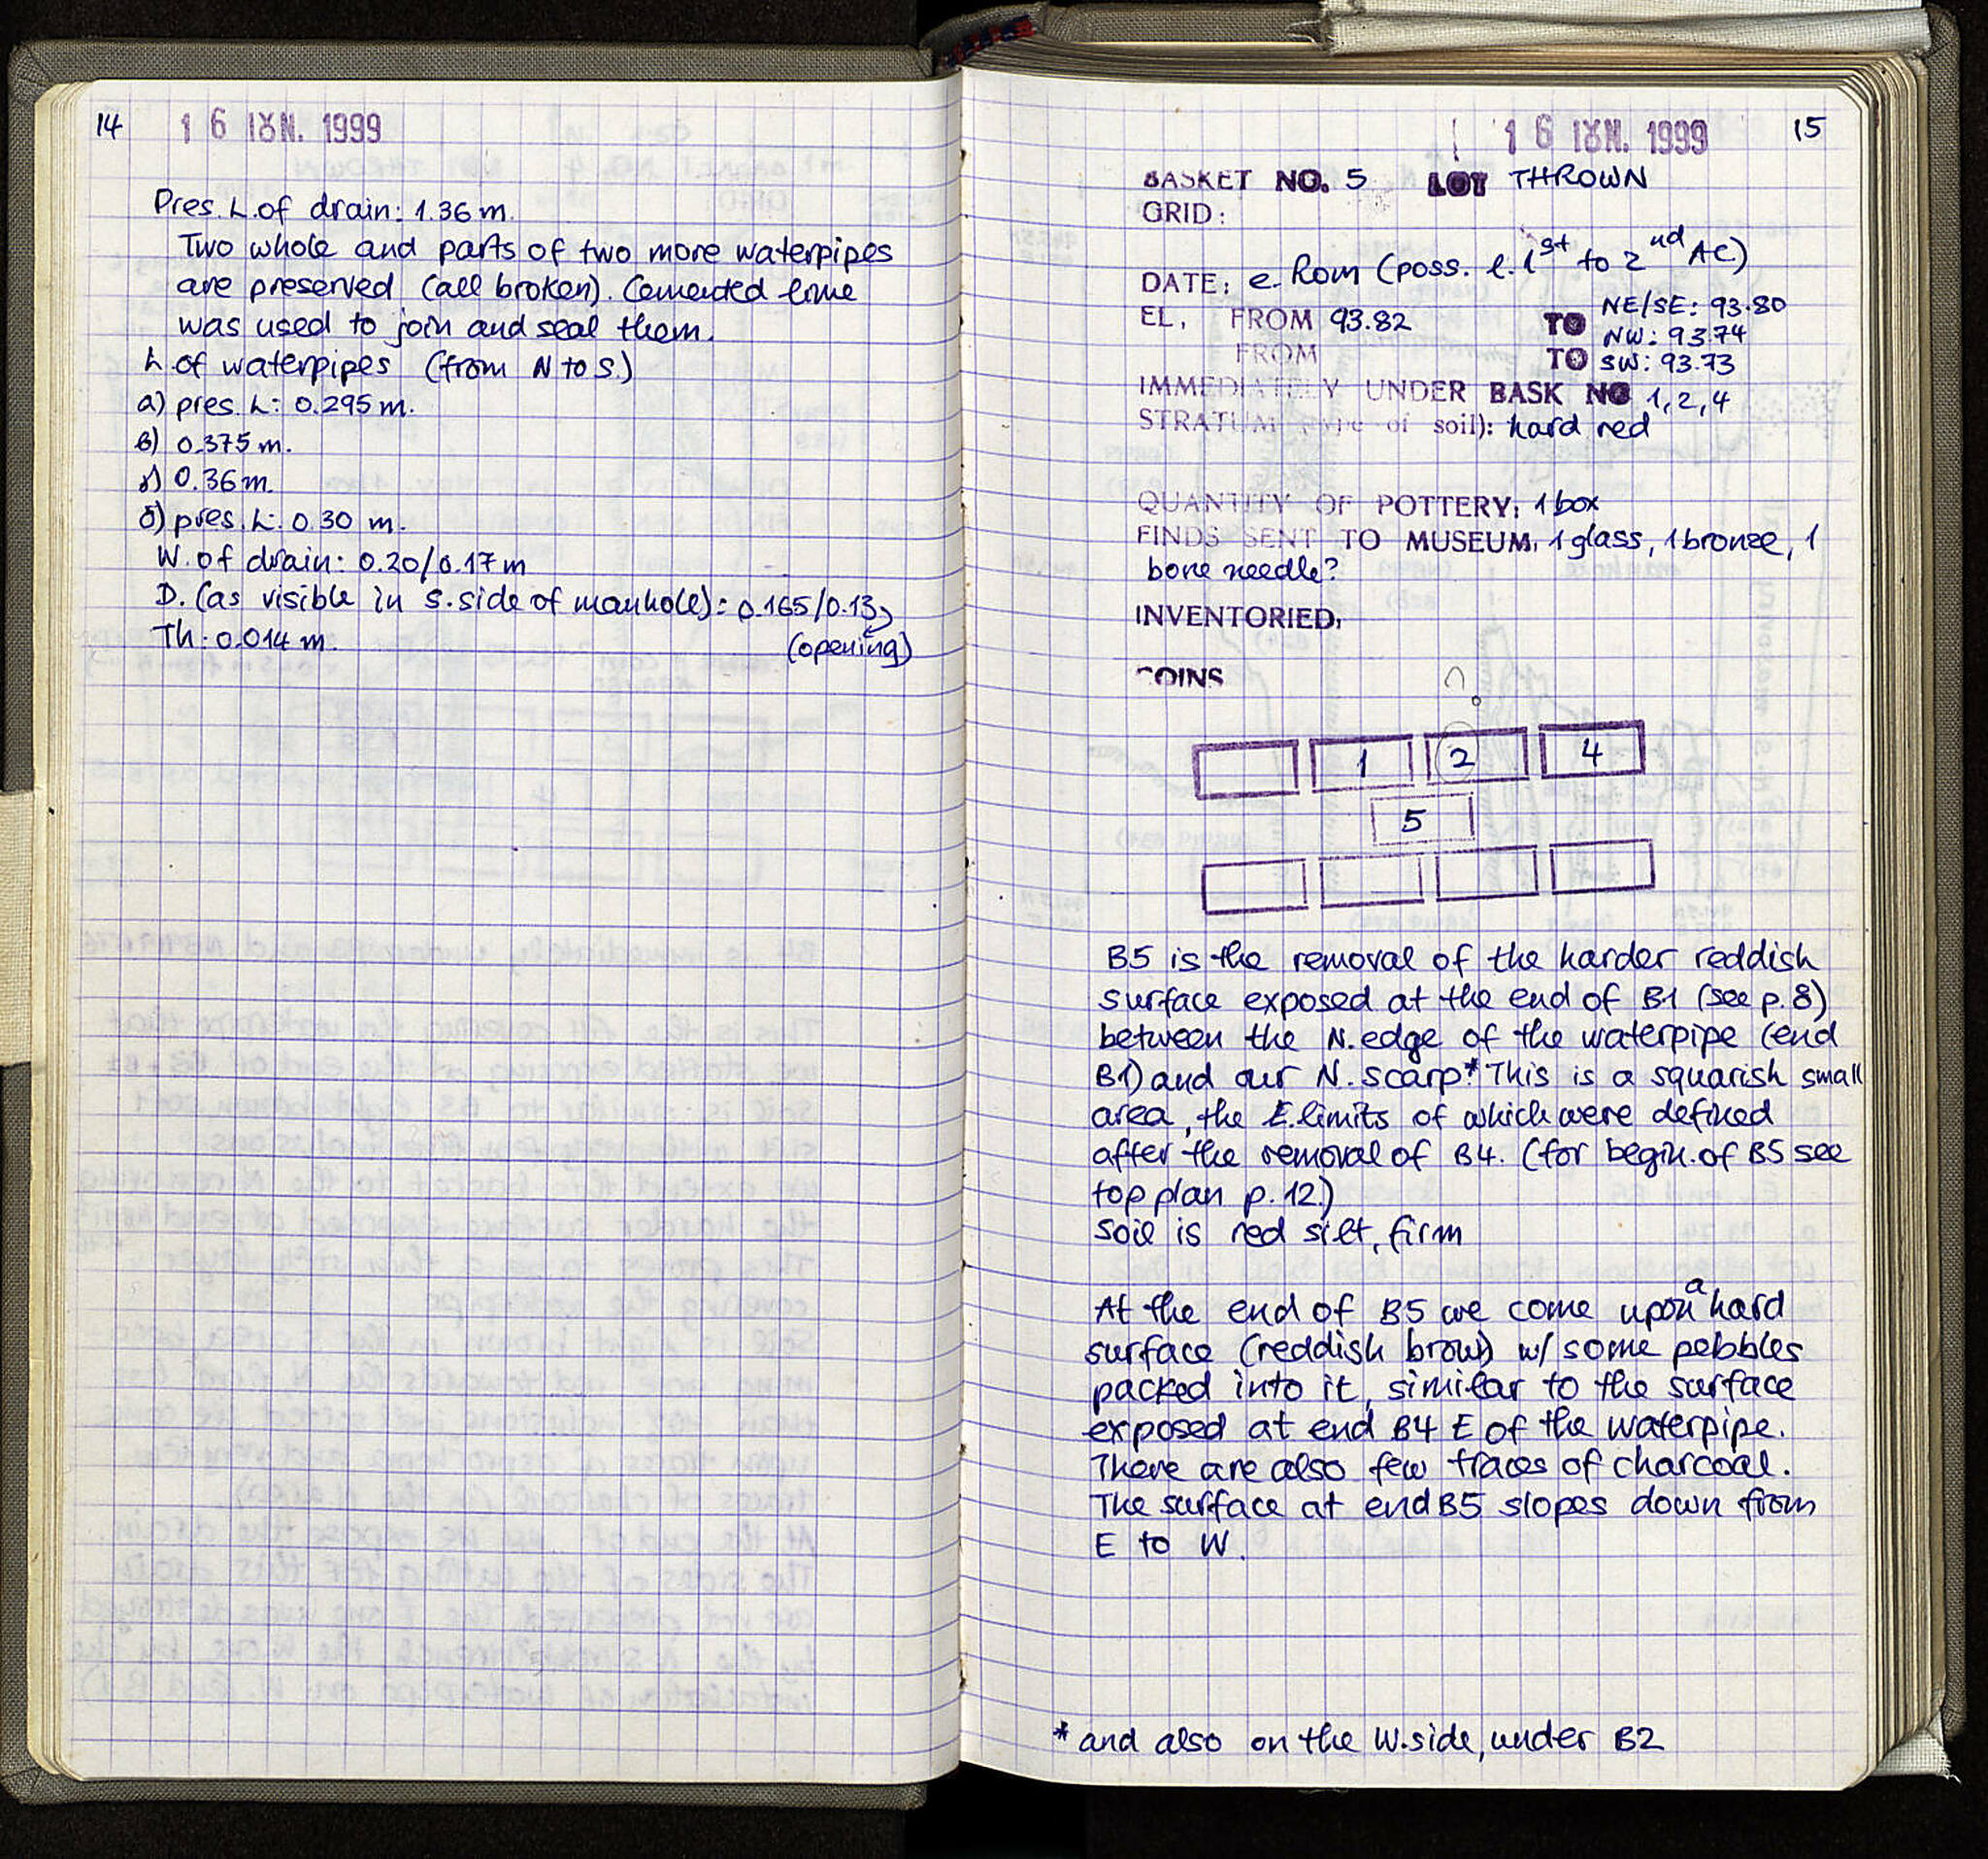 14 16 ΙȢΝ. 1999
Pres. L. of drain: 1.36 m.
Two whole and parts of two more waterpipes
are preserved (all broken). Cemented lime
was used to join and seal them.
L. of waterpipes (from N to S.)
α) pres. L: 0.295 m.
β) 0.375 m.
γ) 0.36 m.
δ) pres. L: 0.30 m.
W. of drain: 0.20/0.17 m
D. (as visible in S. side of manhole): 0.165/0.13
(opening)
Th: 0.014 m.
16 ΙȢΝ. 1999 15
BASKET NO. 5 LOT THROWN
GRID:
DATE: e. Rom (poss. l. 1st to 2nd AC)
EL. FROM 93.82 TO NE/SE: 93.80
NW: 93.74
FROM TO SW: 93.73
IMMEDIATELY UNDER BASK NO 1, 2, 4
STRATUM (type of soil): hard red
QUANTITY OF POTTERY: 1 box
FINDS SENT TO MUSEUM: 1 glass, 1 bronze, 1
bone needle?
INVENTORIED:
COINS
?
1 2 4
5
B5 is the removal of the harder reddish
surface exposed at the end of B1 (see p. 8)
between the N. edge of the waterpipe (end
B1) and our N. scarp.* This is a squarish small
area, the E. limits of which were defined
after the removal of B4. (for begin. of B5 see
top plan p. 12)
Soil is red silt, firm
At the end of B5 we come upon a hard
surface (reddish brow) w/ some pebbles
packed into it, similar to the surface
exposed at end B4 E of the waterpipe.
There are also few traces of charcoal.
The surface at end B5 slopes down from
E to W.
* and also on the W. side, under B2